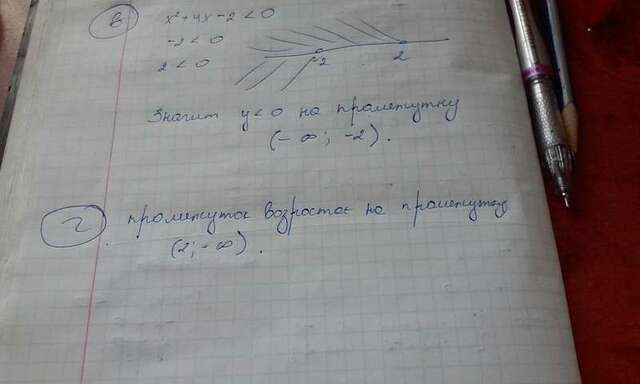 в) x² + 4x - 2 < 0
-2 < 0
2 < 0
-2 2
Значит y < 0 на промежутку
(-∞; -2).
г) промежуток возростає на промежутку
(2; -∞).